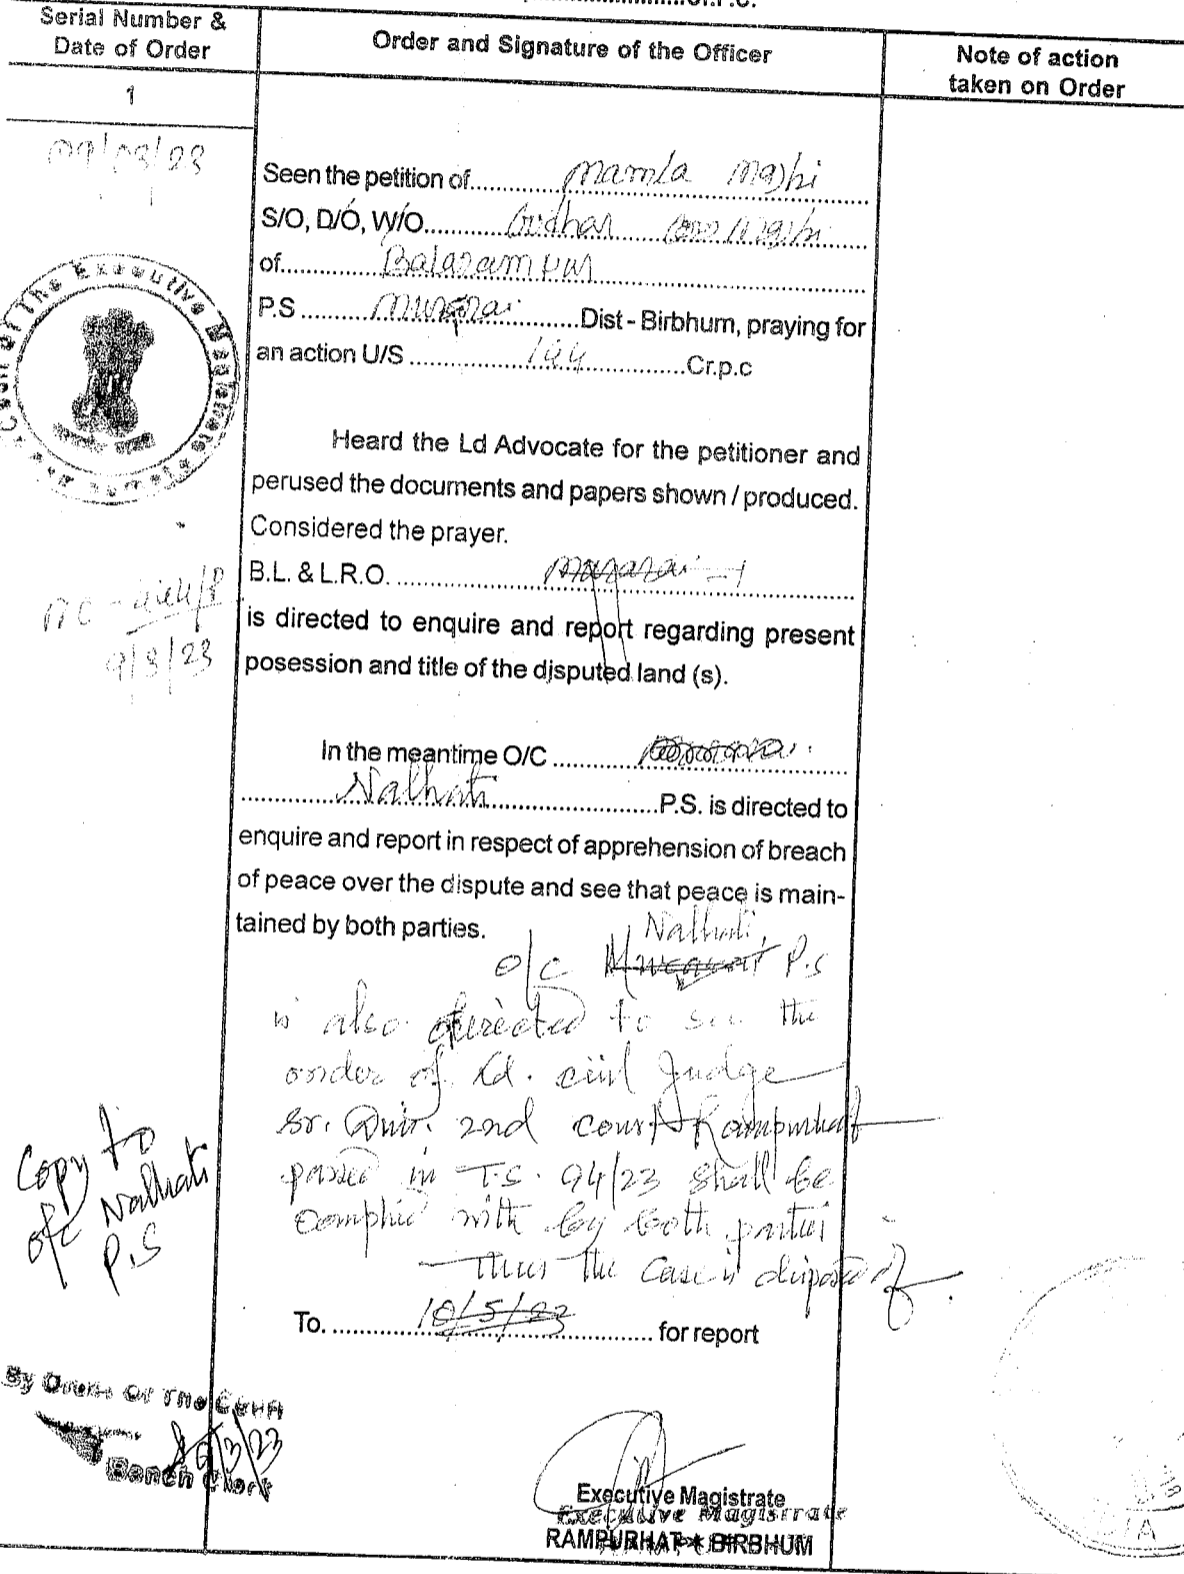 Serial Number &
Date of Order
Order and Signature of the Officer
Note of action
taken on Order
1
09/03/23
Seen the petition of.......... Mamla Majhi
S/O, D/O, W/O.......... Majhi
of.......... Balarampur
P.S .......... Murarai ..........Dist - Birbhum, praying for
an action U/S .......... 144 ..........Cr.p.c
Heard the Ld Advocate for the petitioner and
perused the documents and papers shown / produced.
Considered the prayer.
B.L. & L.R.O. .......... Murarai - 1
is directed to enquire and report regarding present
posession and title of the disputed land (s).
9/3/23
In the meantime O/C ..........
.......... Nalhati ..........P.S. is directed to
enquire and report in respect of apprehension of breach
of peace over the dispute and see that peace is main-
tained by both parties.
Nalhati,
O/C Murarai P.S
is also directed to see the
order of Ld. Civil Judge
Sr. Divn. 2nd Court Rampurhat
passed in T.S. 94/23 shall be
complied with by both parties
Thus the case is disposed of.
Copy to
O/C Nalhati
P.S
To. .......... 10/5/23 .......... for report
By Order Of The Court
9/3/23
Bench Clerk
Executive Magistrate
Executive Magistrate
RAMPURHAT * BIRBHUM